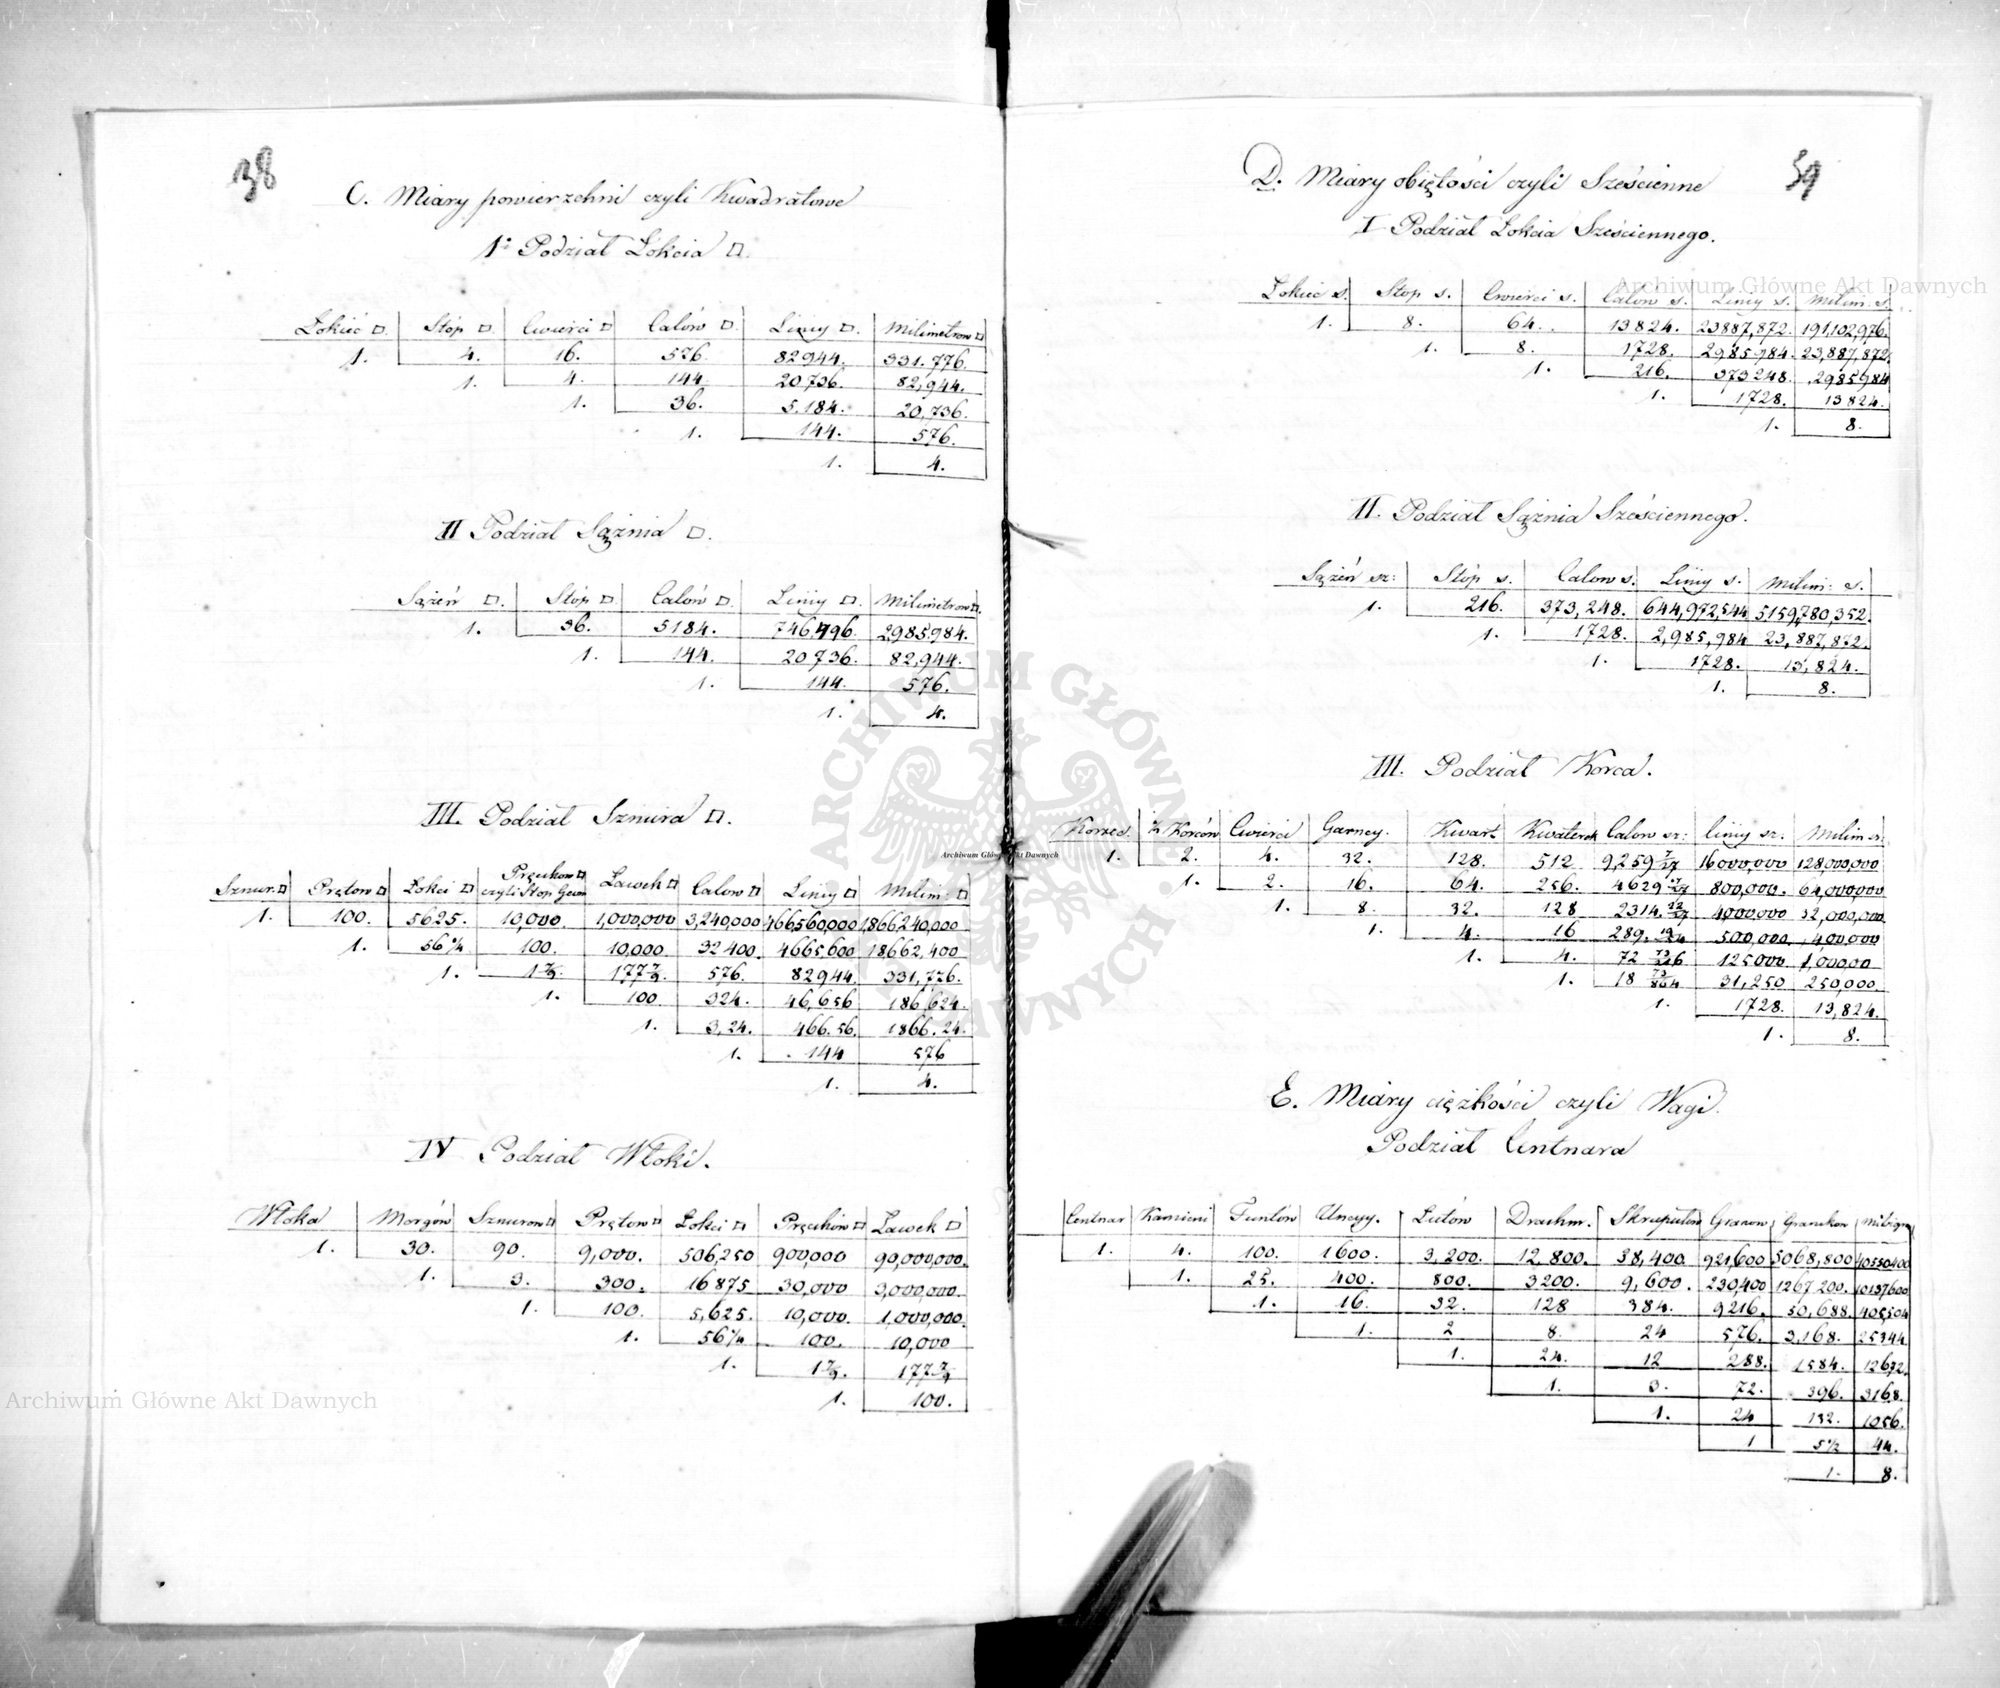 38
C. Miary powierzchni czyli Kwadratowe
1° Podział Łokcia □.
Łokieć □. Stóp □ Cwierci □ Calów □. Liniy □. Milimetrow □
1. 4. 16. 576. 82944. 331.776.
1. 4. 144 20736. 82,944.
1. 36. 5.184. 20,736.
1. 144. 576.
1. 4.
II Podział Sążnia □.
Sążeń □. Stóp □. Calów □. Liniy □. Milimetrow □.
1. 36. 5184. 746,496. 2985.984.
1. 144. 20736. 82,944.
1. 144. 576.
1. 4.
III. Podział Sznura □.
Sznur. □ Prętow □ Łokci □ Pręcikow □ czyli Stop Geom Ławek □ Calow □ Liniy □ Milim: □
1. 100. 5625. 10,000. 1,000,000 3,240,000 466,560,000 1,866,240,000
1. 56 1/4 100. 10,000 32400. 4665,600 18662,400
1. 1 7/9. 177 7/9 576. 82944. 331,776.
1. 100 324. 46,656 186,624.
1. 3,24. 466.56. 1866.24.
1. 144 576
1. 4.
IV Podział Włoki.
Włoka Morgów Sznurow □ Prętow □ Łokci □ Pręcików □ Ławek □
1. 30. 90. 9,000. 506,250 900,000 90,000,000.
1. 3. 300. 16875 30,000 3,000,000.
1. 100. 5,625. 10,000. 1,000,000.
1. 56 1/4 100. 10,000
1. 1 7/9. 177 7/9
1. 100.
59
D. Miary obiętości czyli Sześcienne
I Podział Łokcia Sześciennego.
Łokieć s. Stop s. Cwierci s. Calów s. Liniy s. Milim. s.
1. 8. 64. 13824. 23887,872. 191,102,976.
1. 8. 1728. 2985984. 23,887,872.
1. 216. 373248. 2985984
1. 1728. 13824.
1. 8.
II. Podział Sążnia Sześciennego.
Sążeń sz: Stóp s. Calow s. Liniy s. Milim: s.
1. 216. 373,248. 644,972,544 5159,780,352.
1. 1728. 2,985,984 23,887,872.
1. 1728. 13,824.
1. 8.
III. Podział Korca.
Korzec. ½ Korców Cwierci Garncy. Kwart. Kwaterek Calow sz: liniy sz. Milim sz.
1. 2. 4. 32. 128. 512. 9,259 7/27 16000,000 128,000,000
1. 2. 16. 64. 256. 4629 17/27 800,000. 64,000,000
1. 8. 32. 128 2314. 22/27 4000,000 32,000,000.
1. 4. 16 289. 500,000. 400,000
1. 4. 72 73/216 125000. 1,000,00
1. 18 73/864 31,250 250,000.
1. 1728. 13,824.
1. 8.
E. Miary ciężkości czyli Wagi.
Podział Centnara
Centnar Kamieni Funtów Uncyy. Lutów Drachm. Skrupulow Granow Granikow Miligra
1. 4. 100. 1600. 3,200. 12,800. 38,400. 921,600 5068,800 40550400
1. 25. 400. 800. 3200. 9,600. 230,400 1267200. 10137600
1. 16. 32. 128 384. 9216. 50,688. 405,504
1. 2 8. 24 576. 3,168. 25344.
1. 24. 12 288. 1584. 12672.
1. 3. 72. 396. 3168.
1. 24 132. 1056.
1 5 1/2 44.
1. 8.
Archiwum Główne Akt Dawnych
Archiwum Główne Akt Dawnych
Archiwum Główne Akt Dawnych
ARCHIWUM GŁÓWNE AKT DAWNYCH